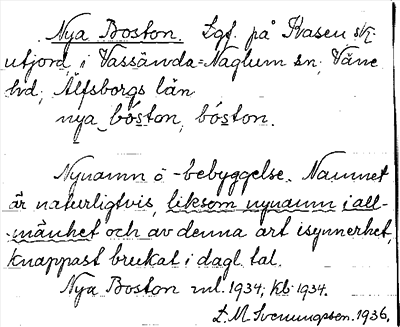 Nya Boston. Lgf. på Kasen sk.
utjord, i Vassända-Naglum sn, Väne
hd, Älfsborgs län
nya bóston, bóston.
Nynamn å -bebyggelse. Namnet
är naturligtvis, liksom nynamn i all-
-mänhet och av denna art isynnerhet,
knappast brukat i dagl. tal.
Nya Boston ml. 1934; kb. 1934.
L. M. Svenungsson. 1936.